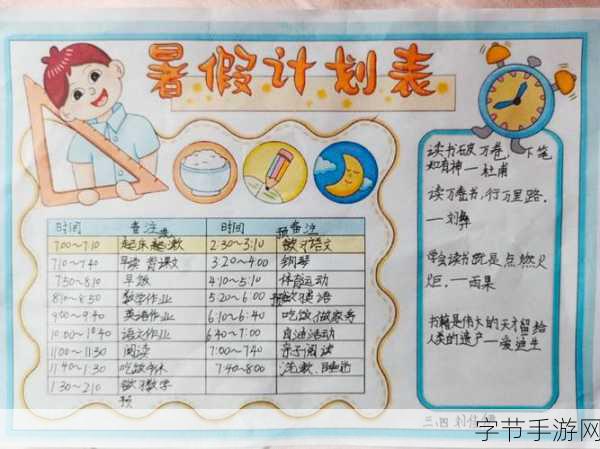 暑假计划表
时间 备注 时间 备注
7:00~7:10 起床 洗漱 2:30~3:10 预习语文
7:10~7:40 早读 背课文 3:20~4:00 钢琴
7:50~8:10 早饭 4:10~5:10 体育运动
8:10~8:50 数学作业 5:20~6:00 预习英语
9:00~9:40 英语作业 6:10~6:40 吃饭 做家务
10:00~10:40 语文作业 自由活动
11:00~11:30 阅读 7:00~7:40 亲子阅读
11:40~1:30 吃饭 午休 7:40~8:00 洗漱、睡觉
1:30~2:10 预习数学
读书破万卷,下笔
如有神—杜甫
读万卷书,行万里路。
—刘彝
学会读书就是点燃火
炬。—雨果
书籍是伟大的天才留给
人类的遗产—爱迪生
三.四 刘佳
字节手游网